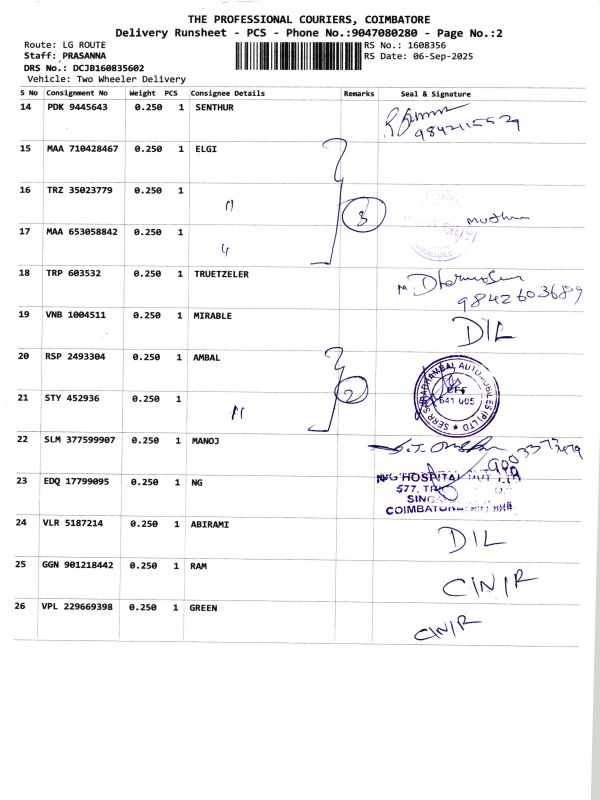 THE PROFESSIONAL COURIERS, COIMBATORE
Delivery Runsheet - PCS - Phone No.:9047080280 - Page No.:2
Route: LG ROUTE RS No.: 1608356
Staff: PRASANNA RS Date: 06-Sep-2025
DRS No.: DCJB160835602
Vehicle: Two Wheeler Delivery
S No Consignment No Weight PCS Consignee Details Remarks Seal & Signature
14 PDK 9445643 0.250 1 SENTHUR
15 MAA 710428467 0.250 1 ELGI
16 TRZ 35023779 0.250 1 "
3
17 MAA 653058842 0.250 1 "
18 TRP 603532 0.250 1 TRUETZELER
9842603689
19 VNB 1004511 0.250 1 MIRABLE DIL
20 RSP 2493304 0.250 1 AMBAL
2
641 005
21 STY 452936 0.250 1 "
22 SLM 377599907 0.250 1 MANOJ
23 EDQ 17799095 0.250 1 NG
NG HOSPITAL
577, TR
SING
COIMBATORE
24 VLR 5187214 0.250 1 ABIRAMI DIL
25 GGN 901218442 0.250 1 RAM C/N/R
26 VPL 229669398 0.250 1 GREEN C/N/R